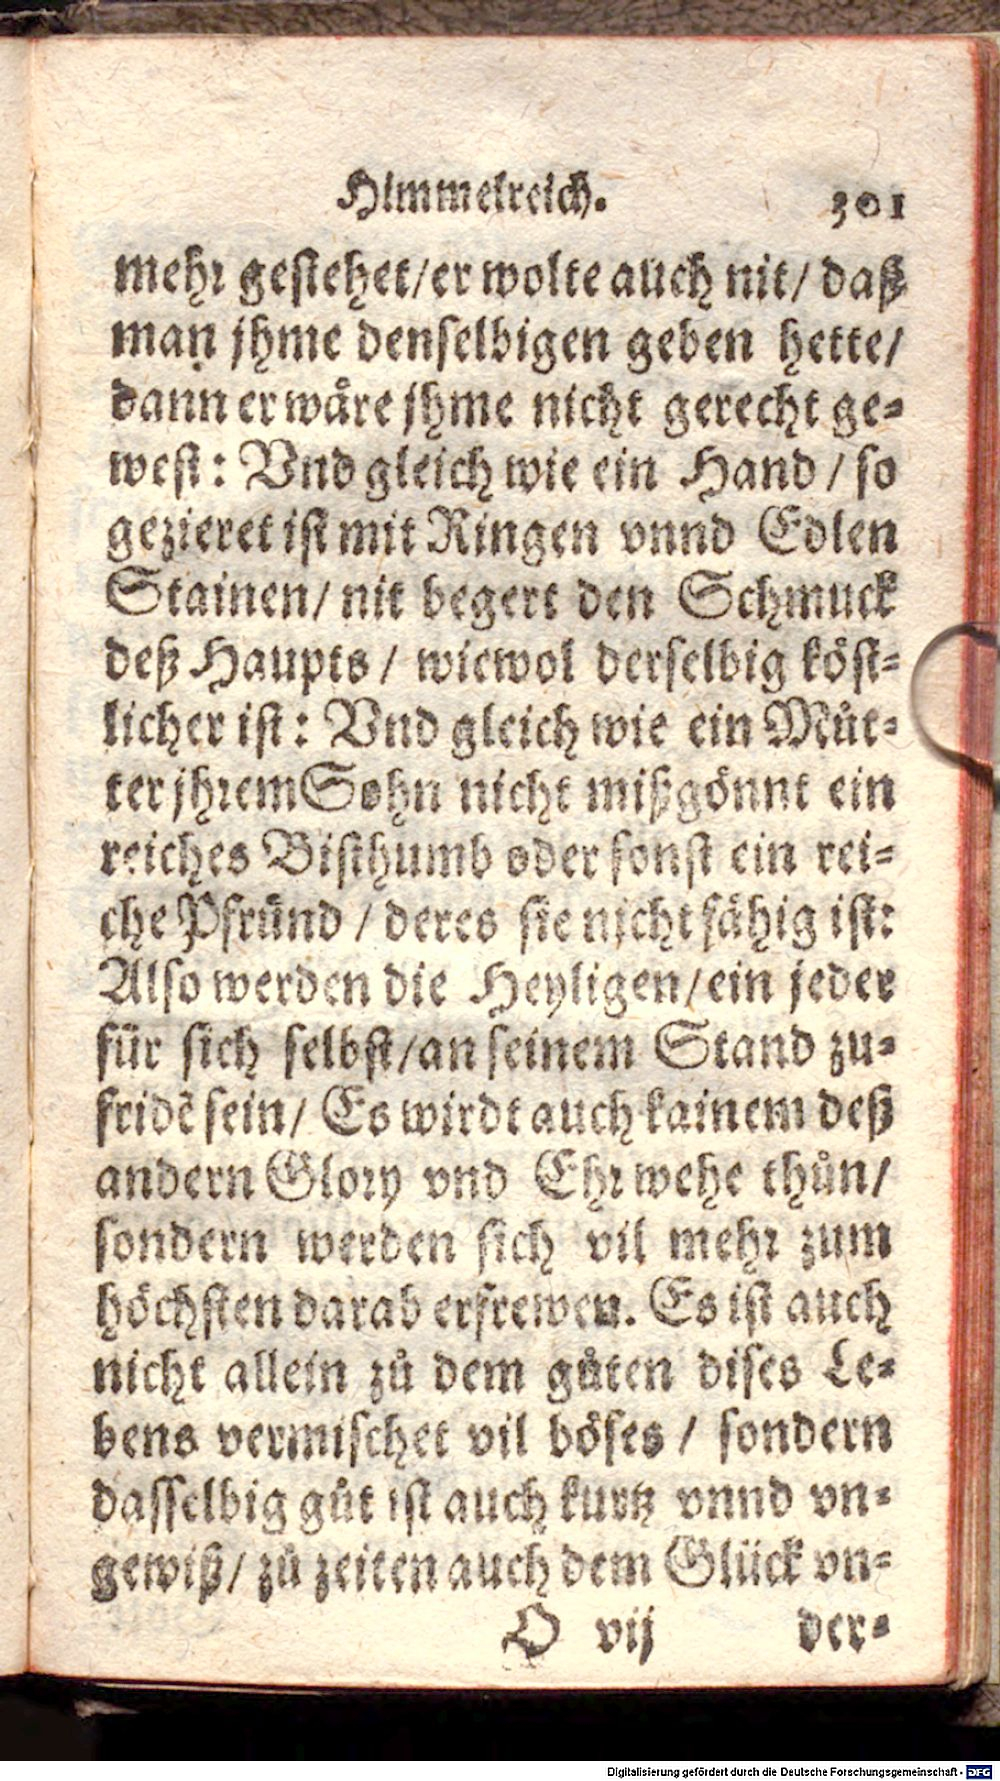 Himmelreich. 301
mehr gestehet/er wolte auch nit/ daß
man jhme denselbigen geben hette/
dann er wåre jhme nicht gerecht ge-
west: Vnd gleich wie ein Hand / so
gezieret ist mit Ringen vnnd Edlen
Stainen/ nit begert den Schmuck
deß Haupts / wiewol derselbig köst-
licher ist: Vnd gleich wie ein Můt-
ter jhrem Sohn nicht mißgönnt ein
reiches Bisthumb oder sonst ein rei-
che Pfründ / deres sie nicht fähig ist:
Also werden die Heyligen/ein jeder
für sich selbst/an seinem Stand zu-
fridẽ sein/ Es wirdt auch kainem deß
andern Glory vnd Ehr wehe thůn/
sondern werden sich vil mehr zum
höchsten darab erfrewen. Es ist auch
nicht allein zů dem gůten dises Le-
bens vermischet vil böses / sondern
dasselbig gůt ist auch kurtz vnnd vn-
gewiß/ zů zeiten auch dem Glück vn-
O vij der-
Digitalisierung gefördert durch die Deutsche Forschungsgemeinschaft - DFG